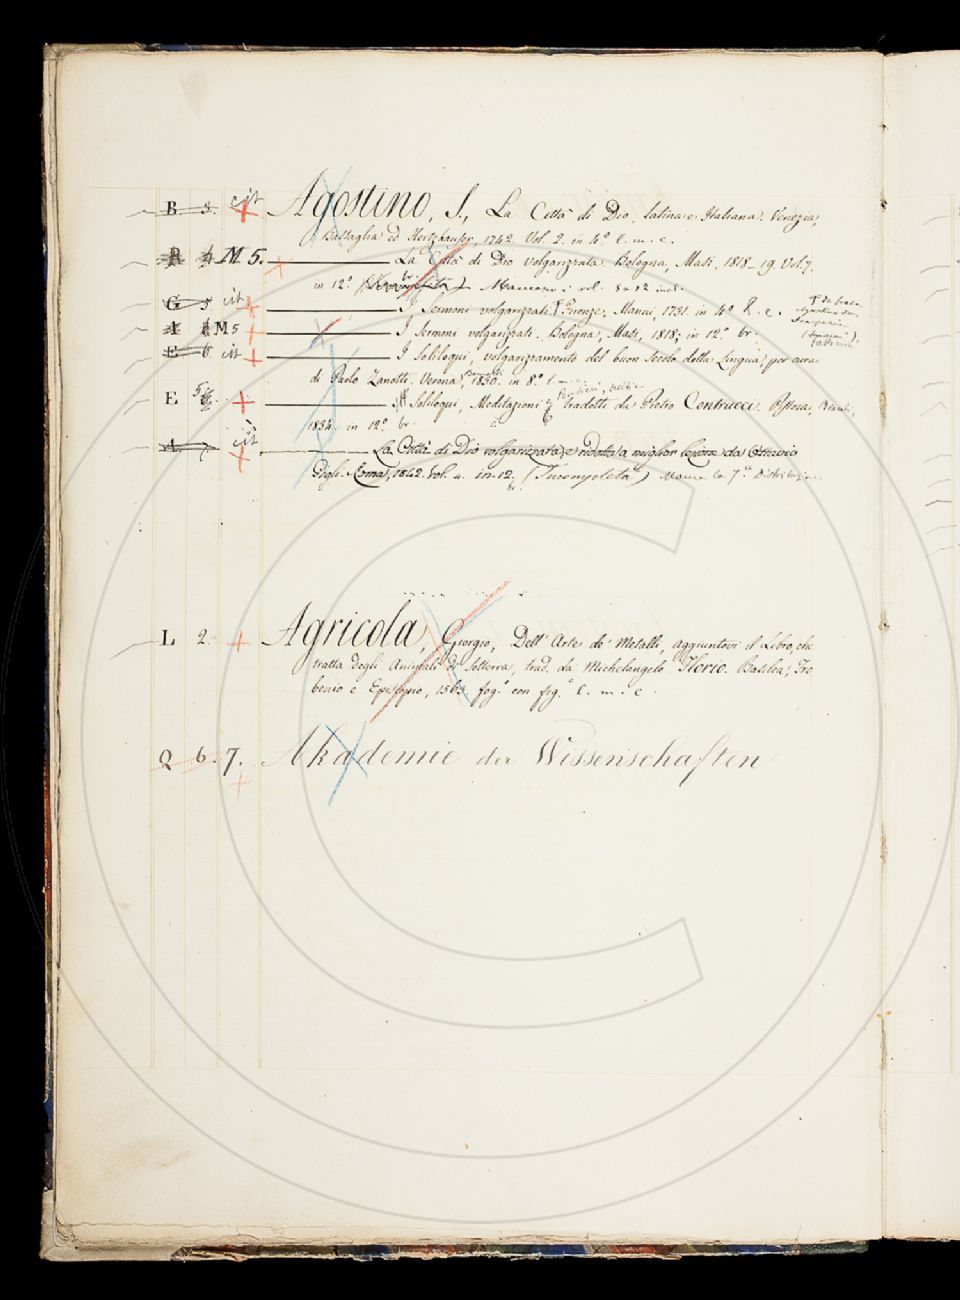 B 5. cit + Agostino, S., La Città di Dio, latina e Italiana. Venezia,
Battaglia ed Hertzhauser, 1742. Vol. 2. in 4º l. m. c.
M 5. La Città di Dio volgarizzata. Bologna, Masi, 1818-19. Vol. 7.
in 12º br. Mancano i vol.
G 5 cit + I Sermoni volgarizzati. Firenze, Manni, 1731. in 4º
M 5 + I Sermoni volgarizati. Bologna, Masi, 1818, in 12º br.
E 6 cit + I Soliloqui, volgarizzamento del buon secolo della Lingua, per cura
di Paolo Zanotti. Verona, 1830. in 8º. l. m. c.
E 5 + Soliloqui, Meditazioni tradotti da Pietro Contrucci. Pistoia,
1834. in 12º br.
A cit + La Città di Dio volgarizzata, e ridotta a miglior lezione da Ottavio
Gigli. Roma, 1842. Vol. 4. in 12. br. (Incompleta)
L 2. + Agricola, Giorgio, Dell' Arte de' Metalli, aggiuntovi il Libro, che
tratta degli Animali di Sotterra, trad. da Michelangelo Florio. Basilea, Fro
benio e Episcopio, 1563. fog.º con fig.º l. m. c.
Q 6. 7. Akademie der Wissenschaften
+
C